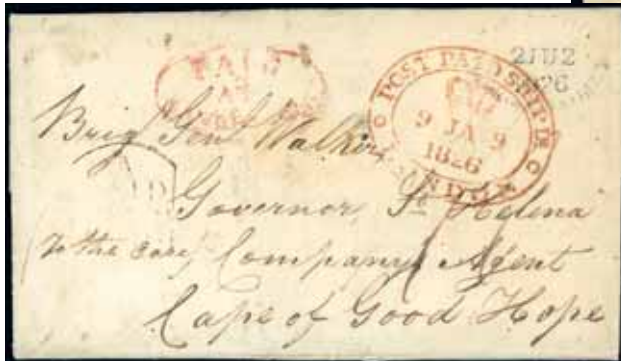 PAID
AT
POST PAID SHIP LR
9 JA 9
1826
LONDON
2JU2
26
Brig. Genl Walker
Governor, St. Helena
To the care, Company's Agent
Cape of Good Hope